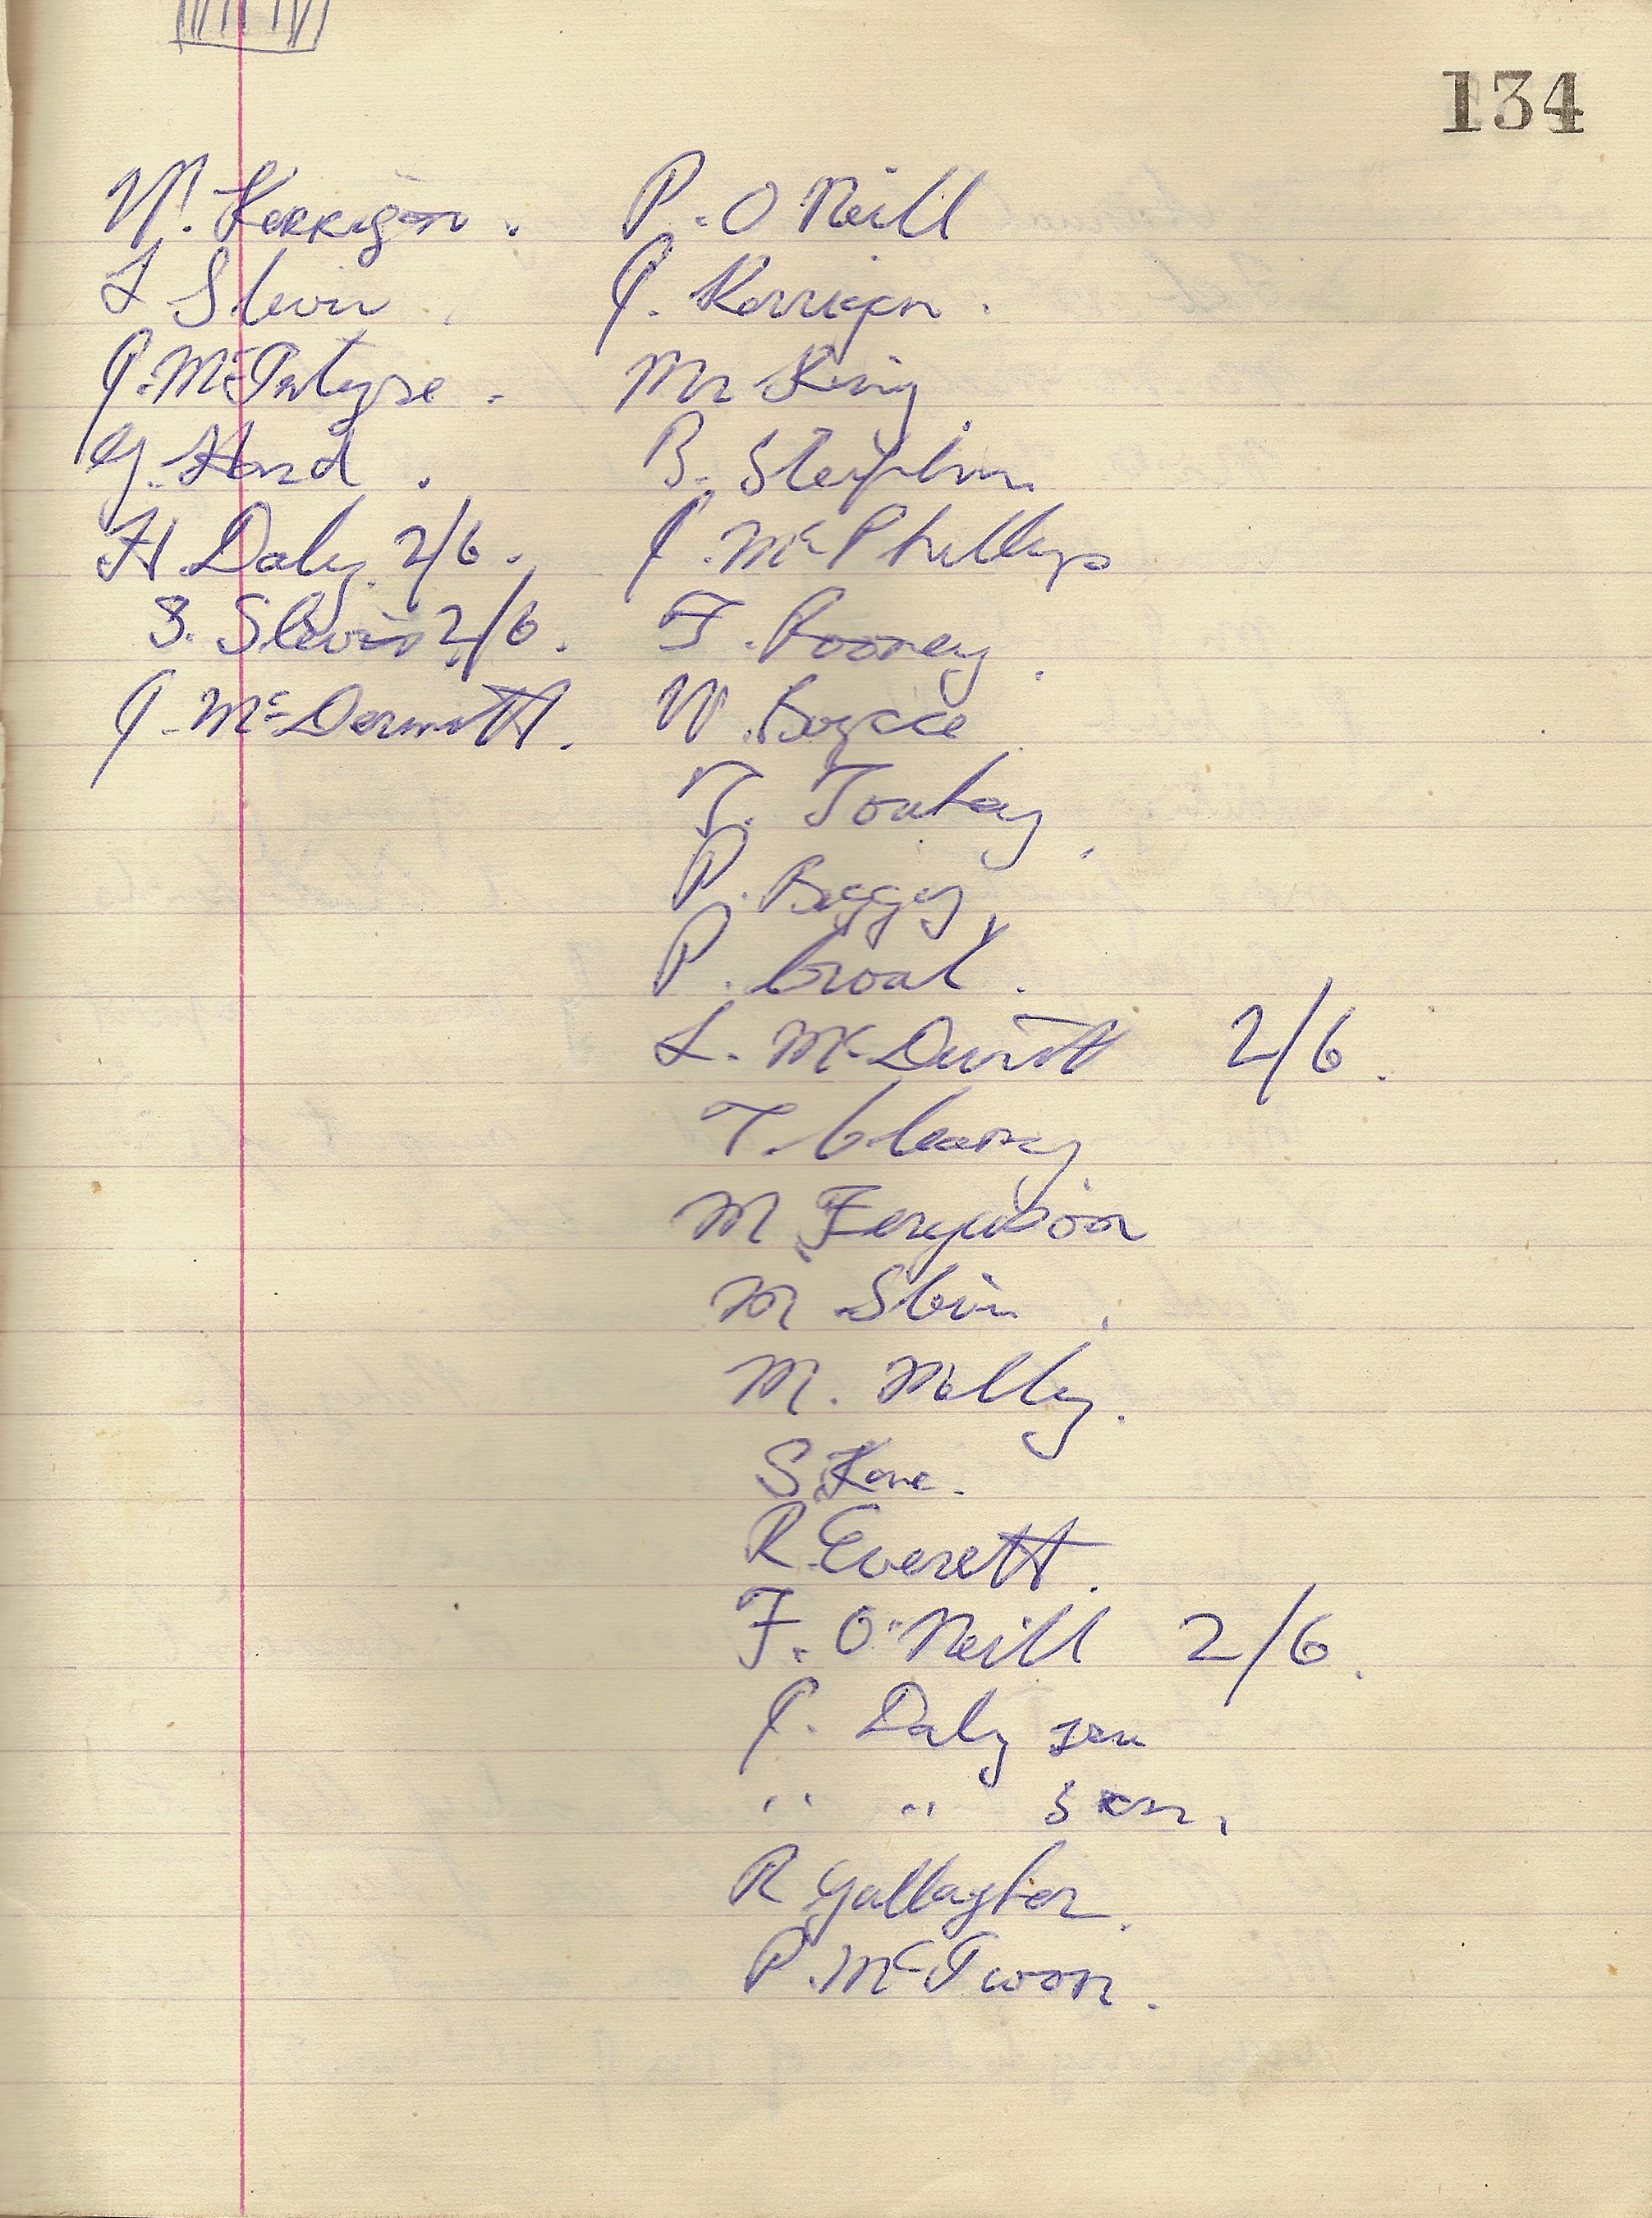 134
W. Kerrigan.
L Slevin
J. McIntyre.
G. Hand.
H. Daly. 2/6.
S. Slevin 2/6.
J. McDermott.
P. O Neill
J. Kerrigan.
Mr King
B.
J. McPhillips
F. Rooney.
W.
T.
P. Beggy
P. Croal.
L. McDevitt 2/6.
T. Cleary
M Ferguson
M Slevin.
M.
S. Kane.
R. Everett.
F. O'Neill 2/6.
J. Daly sen
" " son.
R Gallagher.
P.